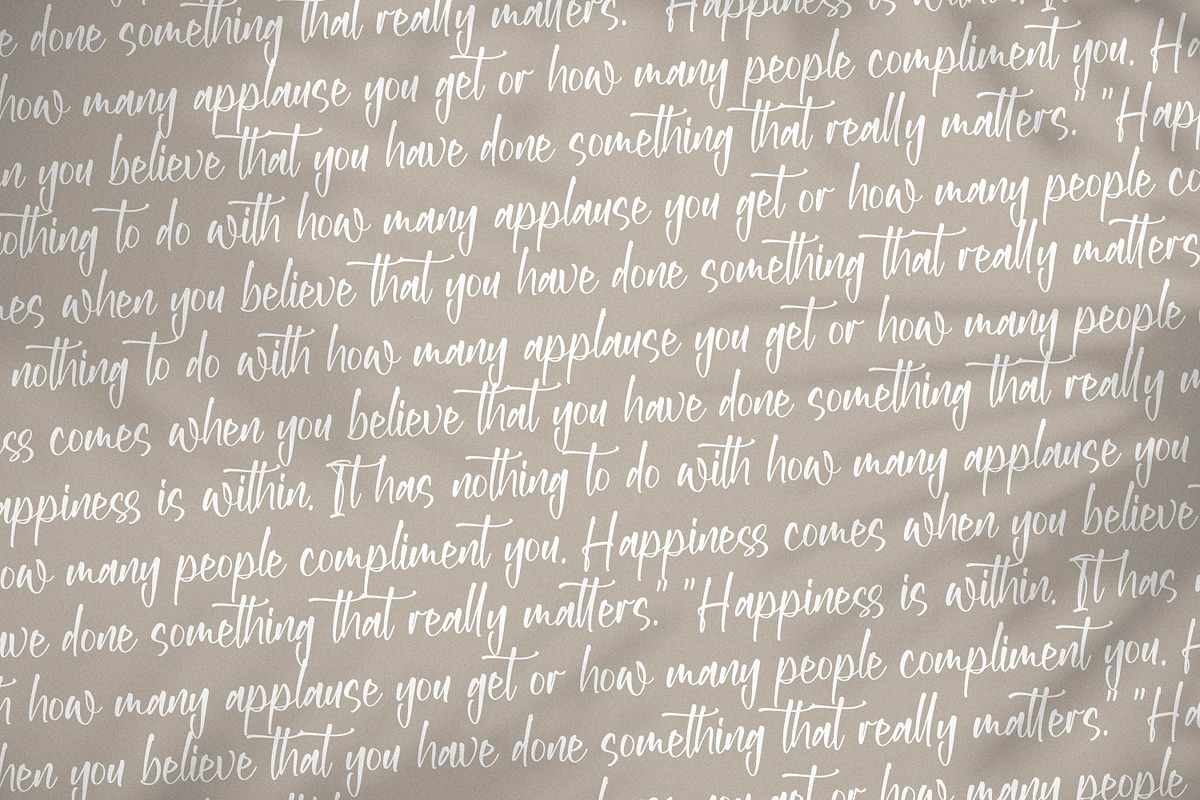 e done something that really matters." "Happiness is within. It
how many applause you get or how many people compliment you. Ha
n you believe that you have done something that really matters." "Happ
nothing to do with how many applause you get or how many people co
mes when you believe that you have done something that really matters
nothing to do with how many applause you get or how many people
ss comes when you believe that you have done something that really m
appiness is within. It has nothing to do with how many applause you
ow many people compliment you. Happiness comes when you believe
ave done something that really matters." "Happiness is within. It has
h how many applause you get or how many people compliment you. H
hen you believe that you have done something that really matters." "Ha
you get or how many people